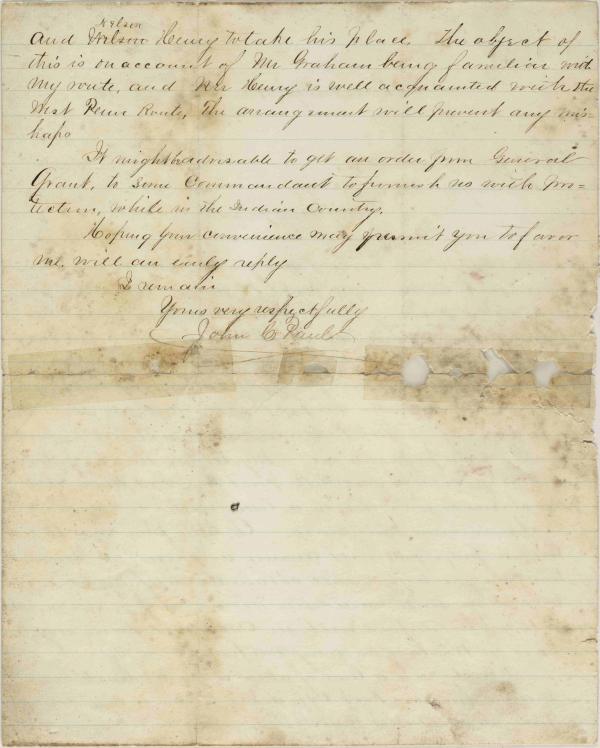 Nelson
and Wilson Henry to take his place. The object of
this is on account of Mr Graham being familiar with
my route, and Mr Henry is well acquainted with the
West Penn Route, The arrangement will prevent any mis-
haps
It might be advisable to get an order from General
Grant, to some Commandant to furnish us with Pro-
tection, while in the Indian Country.
Hoping your convenience may permit you to favor
me, with an early reply
I remain
Yours very respectfully
John C Paul